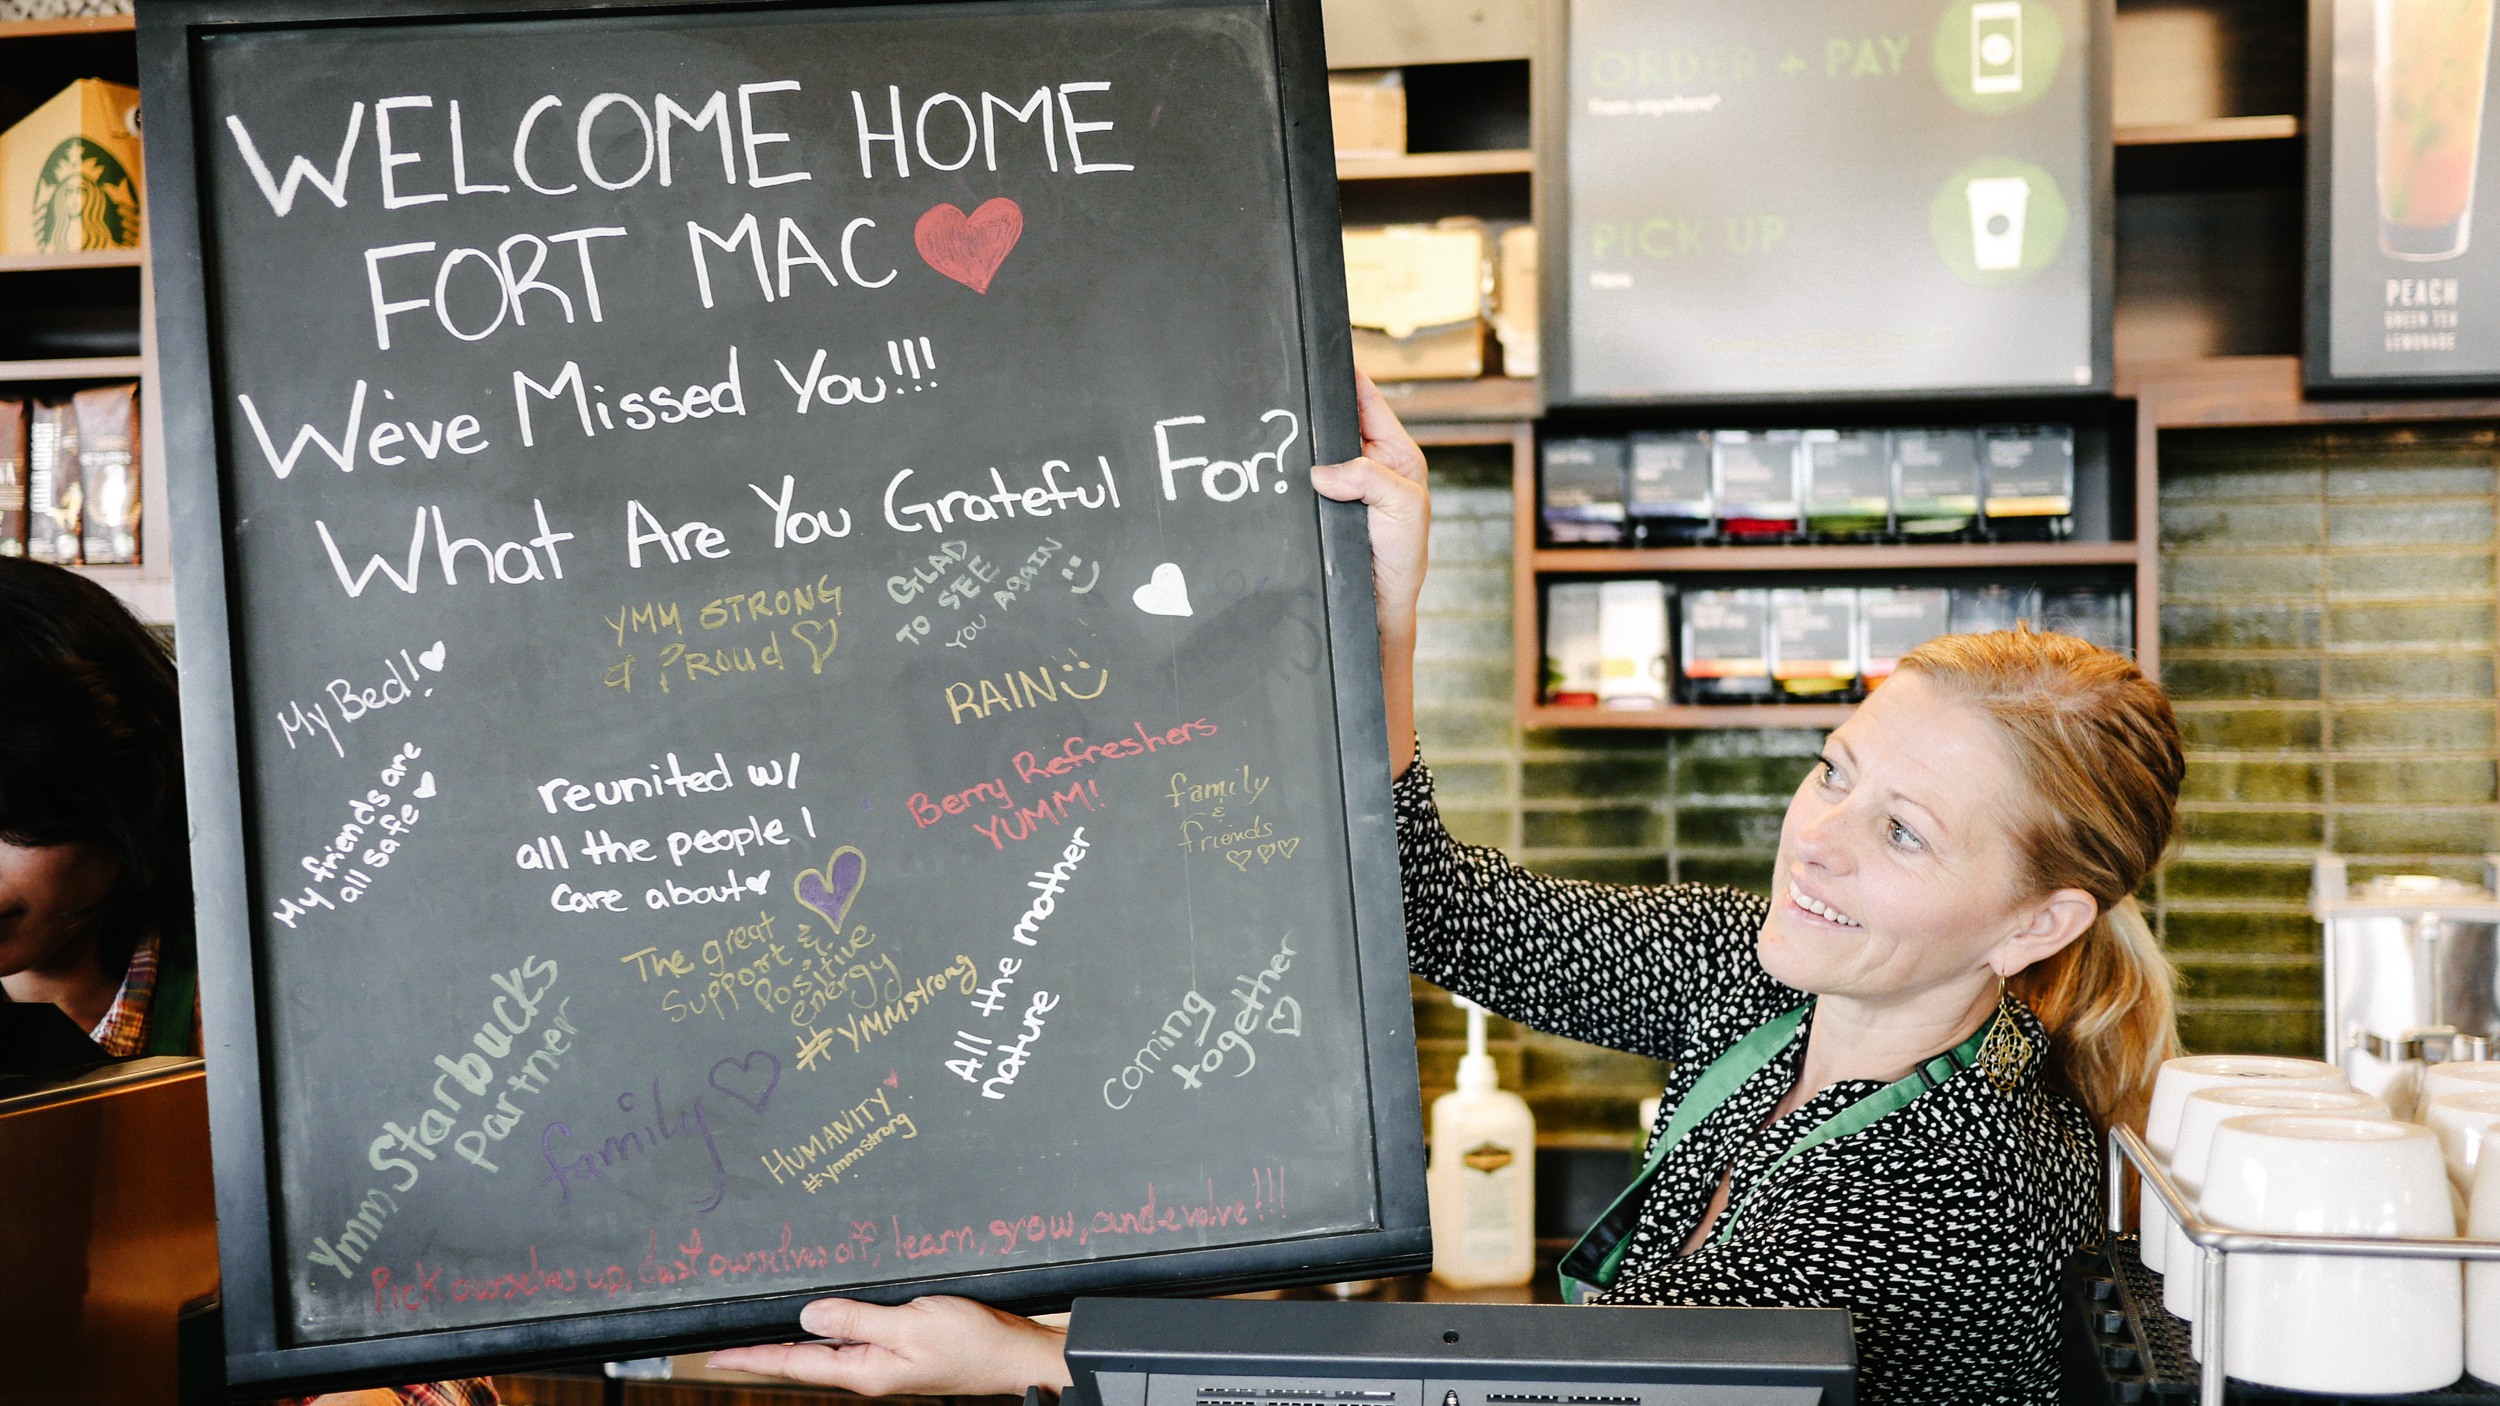 WELCOME HOME
FORT MAC
We've Missed You!!!
What Are You Grateful For?
YMM STRONG
& PROUD
GLAD
TO SEE
YOU AGAIN
My Bed!
RAIN
My friends are
all safe
reunited w/
all the people I
care about
Berry Refreshers
YUMM!
family
&
friends
The great
support &
Positive
energy
#YMMstrong
All the mother
nature
coming
together
Ymm Starbucks
Partner
family
HUMANITY
#ymmstrong
Pick ourselves up, dust ourselves off, learn, grow, and evolve!!!
ORDER + PAY
from anywhere*
PICK UP
Here
PEACH
GREEN TEA
LEMONADE